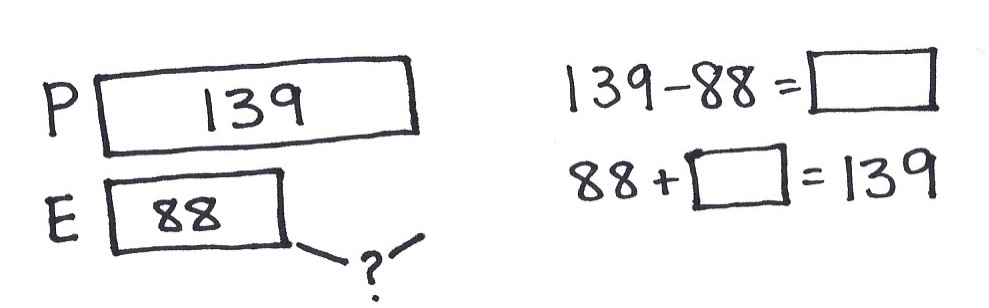 P 139
E 88
?
139-88 =
88+ = 139